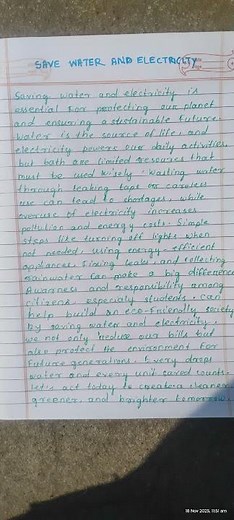 SAVE WATER AND ELECTRICITY
Saving water and electricity is
essential for protecting our planet
and ensuring a sustainable future.
Water is the source of life, and
electricity powers our daily activities,
but both are limited resources that
must be used wisely. Wasting water
through leaking taps or careless
use can lead to shortages, while
overuse of electricity increases
pollution and energy costs. Simple
steps like turning off lights when
not needed, using energy-efficient
appliances, fixing leaks, and collecting
rainwater can make a big difference
Awarness and responsibility among
citizens, especially students, can
help build an eco-friendly society
By saving water and electricity,
we not only reduce our bills but
also protect the environment for
future generations. Every drops
water and every unit saved counts.
let's act today to create a cleaner
greener, and brighter tomorrow.
18 Nov 2025, 11:51 am